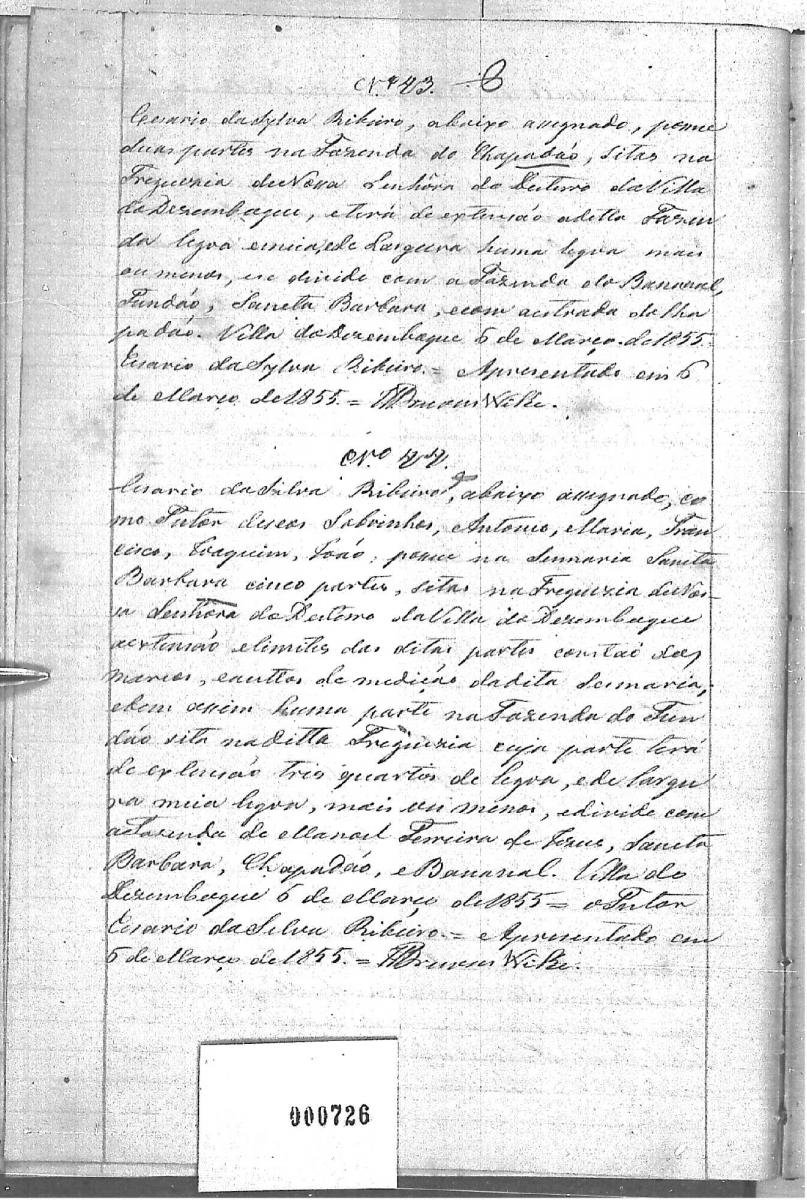 Nº 43.
Cesario da Sylva Ribeiro, abaixo assignado, possue
duas partes na Fazenda do Chapadão, sitas na
Freguezia de Nossa Senhôra do Desterro da Villa
do Dezemboque, e terá de extensão a detta Fazen
da legoa e meia, e de Largura huma legoa mais
ou menos, e se divide com a Fazenda do Bananal,
Fundão, Sancta Barbara, e com a estrada do Cha
padão. Villa do Dezemboque 6 de Março de 1855 =
Cesario da Sylva Ribeiro. = Apresentado em 6
de Março de 1855. =
Nº 44.
Cesario da Silva Ribeiro, abaixo assignado, co
mo Tutor de seos Sobrinhos, Antonio, Maria, Fran
cisco, Joaquim, João; possue na Sesmaria Sancta
Barbara cinco partes, sitas na Freguezia de Nos-
sa Senhôra do Desterro da Villa do Dezemboque
a extensão e limites das ditas partes constaõ dos
marcos, e auttos de medição da dita Sesmaria;
e bem assim huma parte na Fazenda do Fun
dão sita na ditta Freguezia cuja parte terá
de extensão tres quartos de legoa, e de largu
ra meia legoa, mais ou menos, e divide com
a Fazenda de Manoel Ferreira de Jesus, Sancta
Barbara, Chapadão, e Bananal. Villa do
Dezemboque 6 de Março de 1855 = o Tutor
Cesario da Silva Ribeiro. = Apresentado em
6 de Março de 1855. =
000726